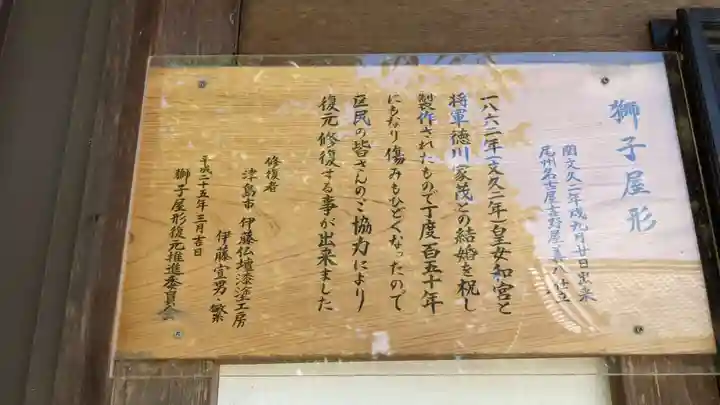 獅子屋形
文久二年戌九月廿日出来
尾州名古屋吉野屋喜八仕立
一八六二年(文久二年)皇女和宮と
将軍徳川家茂との結婚を祝し
製作されたもので丁度百五十年
にもなり傷みもひどくなったので
区民の皆さんのご協力により
復元修復する事が出来ました
修復者
津島市 伊藤仏壇漆塗工房
伊藤宣男・繁
平成二十五年三月吉日
獅子屋形復元推進委員会